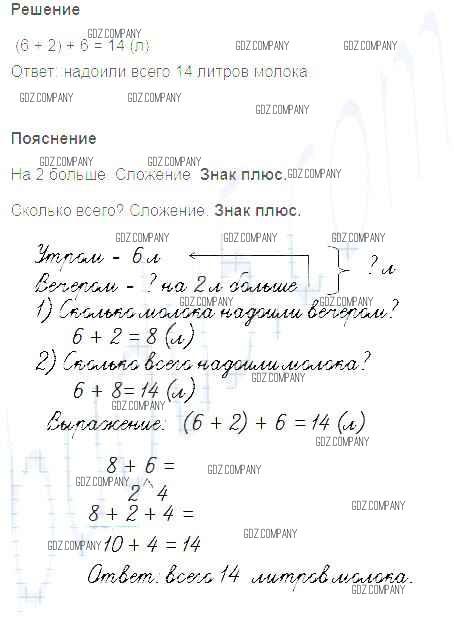 Решение
(6 + 2) + 6 = 14 (л)
GDZ.COMPANY
GDZ.COMPANY GDZ.COMPANY
Ответ: надоили всего 14 литров молока.
GDZ.COMPANY GDZ.COMPANY
GDZ.COMPANY
Пояснение
GDZ.COMPANY GDZ.COMPANY
На 2 больше. Сложение. Знак плюс. GDZ.COMPANY
Сколько всего? Сложение. Знак плюс.
GDZ.COMPANY GDZ.COMPANY GDZ.COMPANY
Утром - 6 л
? л
Вечером - ? на 2 л больше
GDZ.COMPANY GDZ.COMPANY
1) Сколько молока надоили вечером?
6 + 2 = 8 (л)
2) Сколько всего надоили молока?
GDZ.COMPANY
6 + 8 = 14 (л)
GDZ.COMPANY
Выражение: (6 + 2) + 6 = 14 (л)
GDZ.COMPANY
8 + 6 =
GDZ.COMPANY
GDZ.COMPANY
2 4
8 + 2 + 4 =
GDZ.COMPANY
GDZ.COMPANY
GDZ.COMPANY 10 + 4 = 14
Ответ: всего 14 литров молока.
GDZ.COMPANY